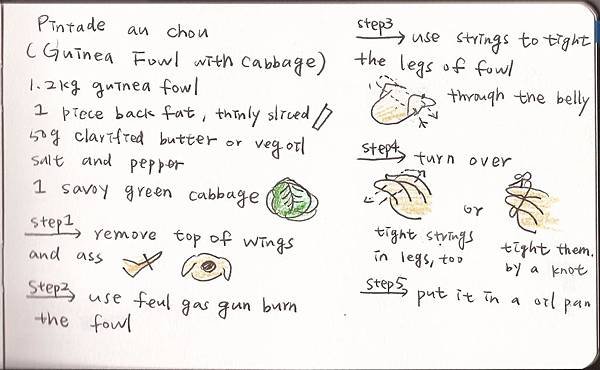 Pintade au chou
(Guinea Fowl with Cabbage)
1.2kg guinea fowl
1 piece back fat, thinly sliced
50g clarified butter or veg oil
salt and pepper
1 savoy green cabbage
step1 remove top of wings
and ass
step2 use feul gas gun burn
the fowl
step3 use strings to tight
the legs of fowl
through the belly
step4 turn over
tight strings
in legs, too
or
tight them
by a knot
step5 put it in a oil pan